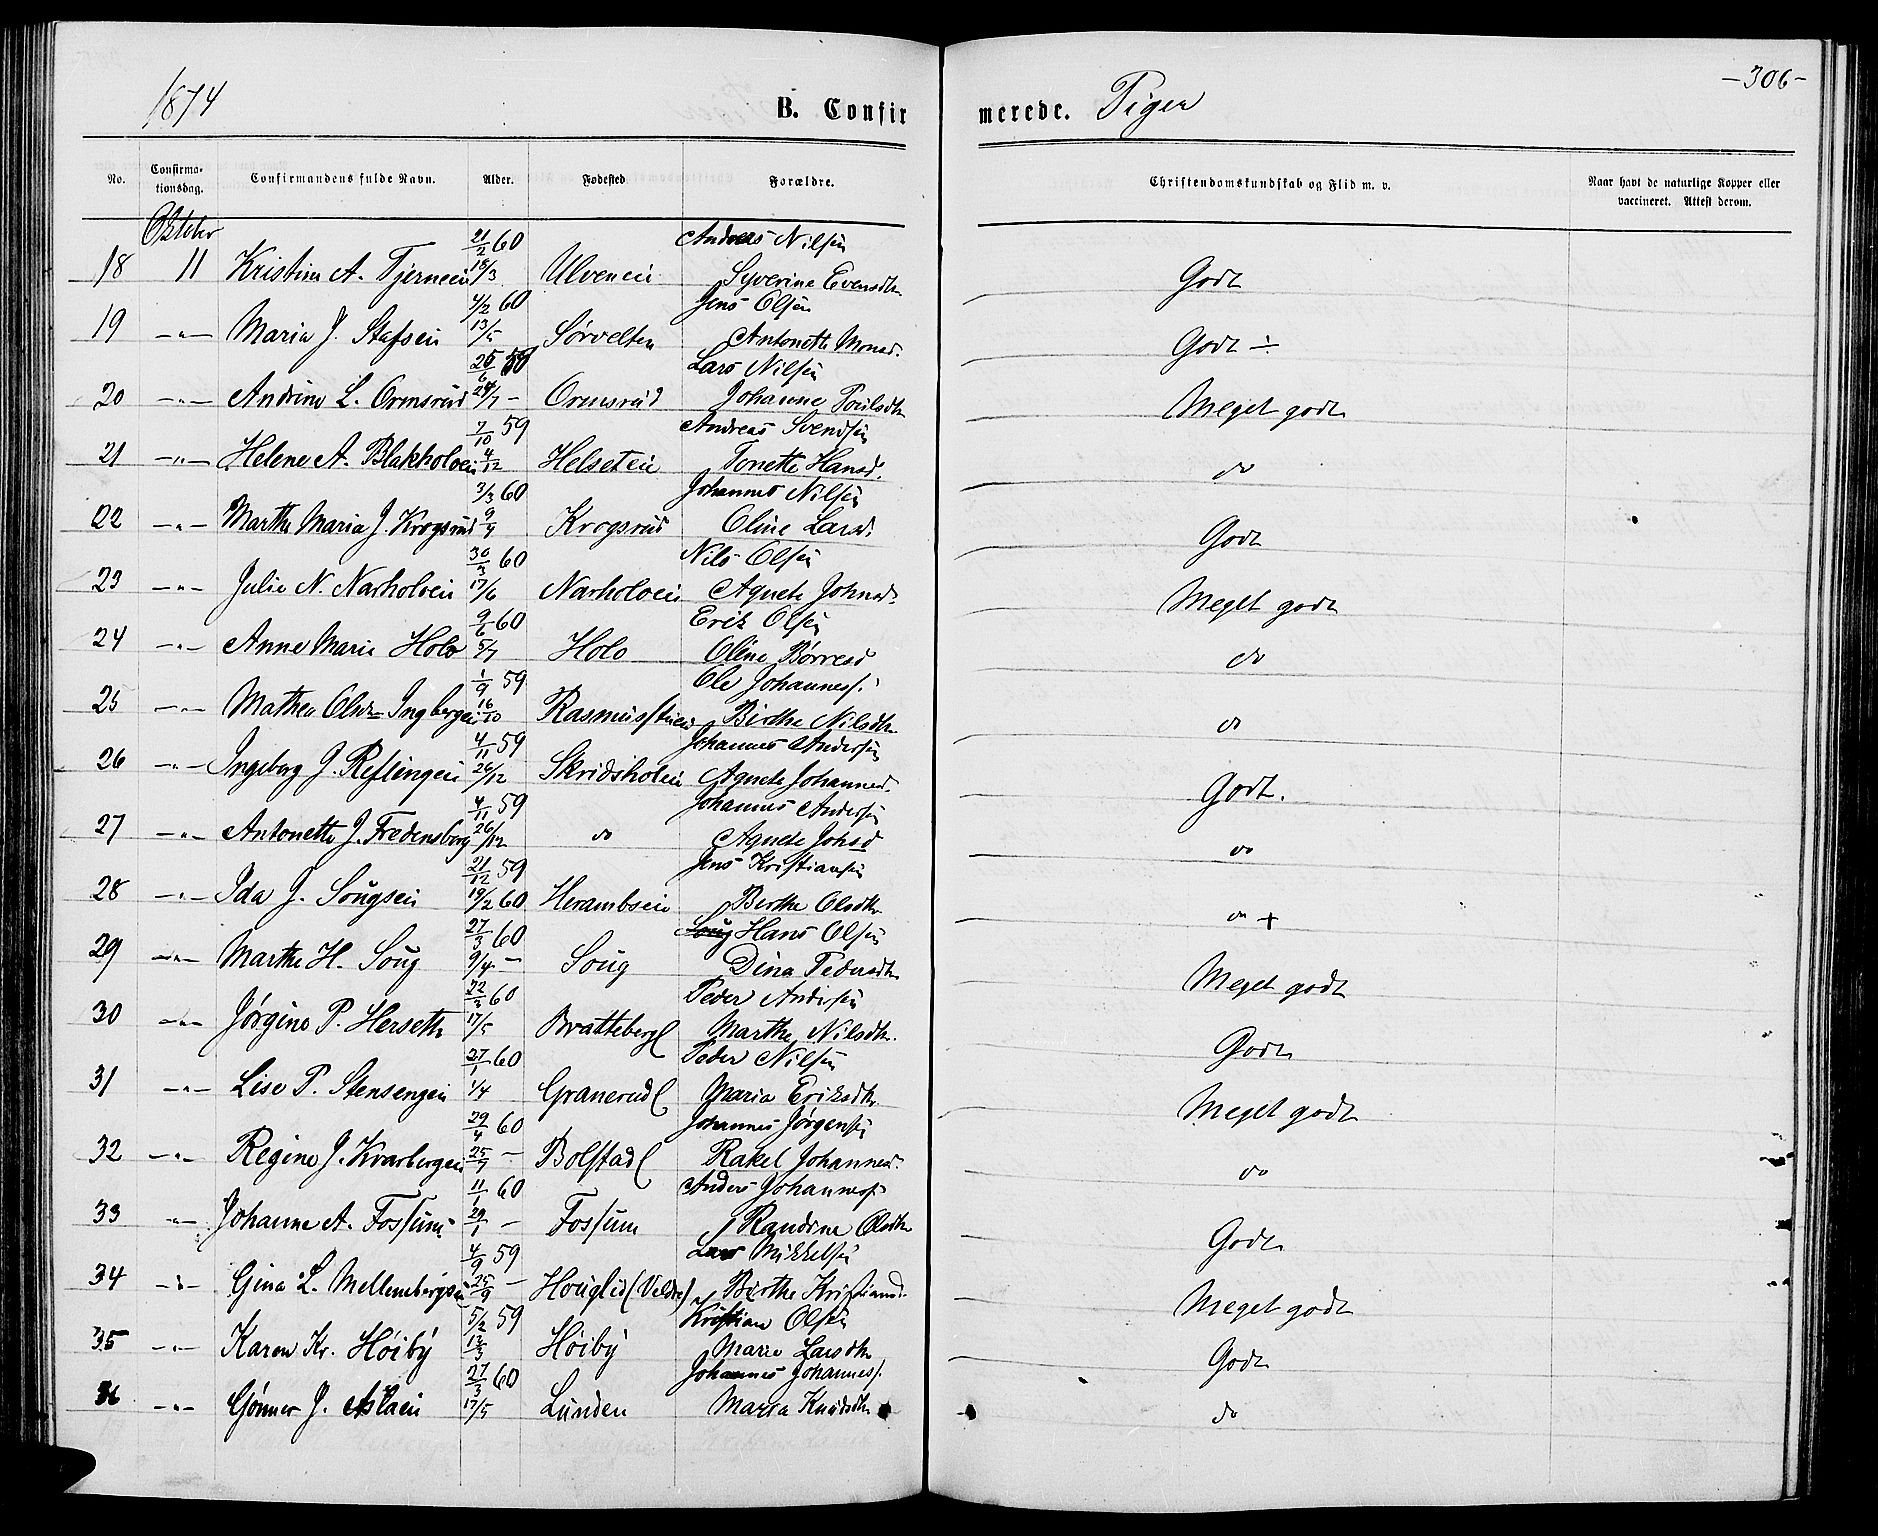 1874 B. Confirmerede. Piger -306-
No. Confirmationsdag. Confirmandens fulde Navn. Alder. Fødested Forældre. Christendomskundskab og Flid m. v. Naar havt de naturlige Kopper eller vaccineret. Attest derom.
Oktober 21/2 60 Andreas Nilsen
18 11 Kristine A. Tjerneien 18/3 Ulveneie Syverine Evensdtr Godt
4/2 60 Jens Olsen
19 -"- Maria J. Stafseie 13/5 Sørvelten Antonette Monsd. Godt ÷
25/6 59 Lars Nilsen
20 -"- Andrine L. Ormsrud 24/7 - Ormsrud Johanne Poulsdtr Meget godt
7/10 59 Andreas Svendsen
21 -"- Helene A. Blakholeie 4/12 Helseteie Tonette Hansd. do
3/3 60 Johannes Nilsen
22 -"- Marthe Maria J. Krogsrud 9/4 Krogsrud Oline Larsd. Godt
30/3 60 Nils Olsen
23 -"- Julie N. Narholeie 17/6 Narholeie Agnete Johnsd. Meget godt
9/6 60 Erik Olsen
24 -"- Anne Marie Holo 5/7 Holo Oline Børresd do
1/9 59 Ole Johanness.
25 -"- Mathea Olsdtr Ingbergeie 16/10 Rasmusstuen Birthe Nilsdtr do
4/11 59 Johannes Andersen
26 -"- Ingeborg J. Reflingeie 26/12 Skridsholeie Agnete Johannesd. Godt.
4/11 59 Johannes Andersen
27 -"- Antonette J. Fredensborg 26/12 do Agnete Johsd do
21/12 59 Jens Kristiansen
28 -"- Ida J. Sougseie 19/2 60 Herambseie Berthe Olsdtr do +
27/3 60 Soug Hans Olsen
29 -"- Marthe H. Soug 9/4 - Soug Dina Pedersdtr Meget godt
22/3 60 Peder Andersen
30 -"- Jørgine P. Herseth 17/5 Bratteberg Marthe Nilsdtr. Godt
27/1 60 Peder Nilsen
31 -"- Lise P. Stensengeie 1/4 Granerud Maria Eriksdtr. Meget godt
29/4 60 Johannes Jørgensen
32 -"- Regine J. Kvarbergeie 25/7 - Bolstad Rakel Johannesd. do
11/1 60 Anders Johanness.
33 -"- Johanne A. Fossum 29/1 - Fossum Randine Olsdtr Godt
4/9 59 Lars Mikkelsen
34 -"- Gina L. Mellembergseie 25/9 - Houglid (Veldre) Birthe Kristiansd. Meget godt
5/2 59 Kristian Olsen
35 -"- Karen Kr. Høiby 13/3 Høiby Marie Larsdtr Godt
27/3 60 Johannes Johanness.
36 -"- Gønner J. Aslaeie 17/5 Lunden Maria Knudsdtr do